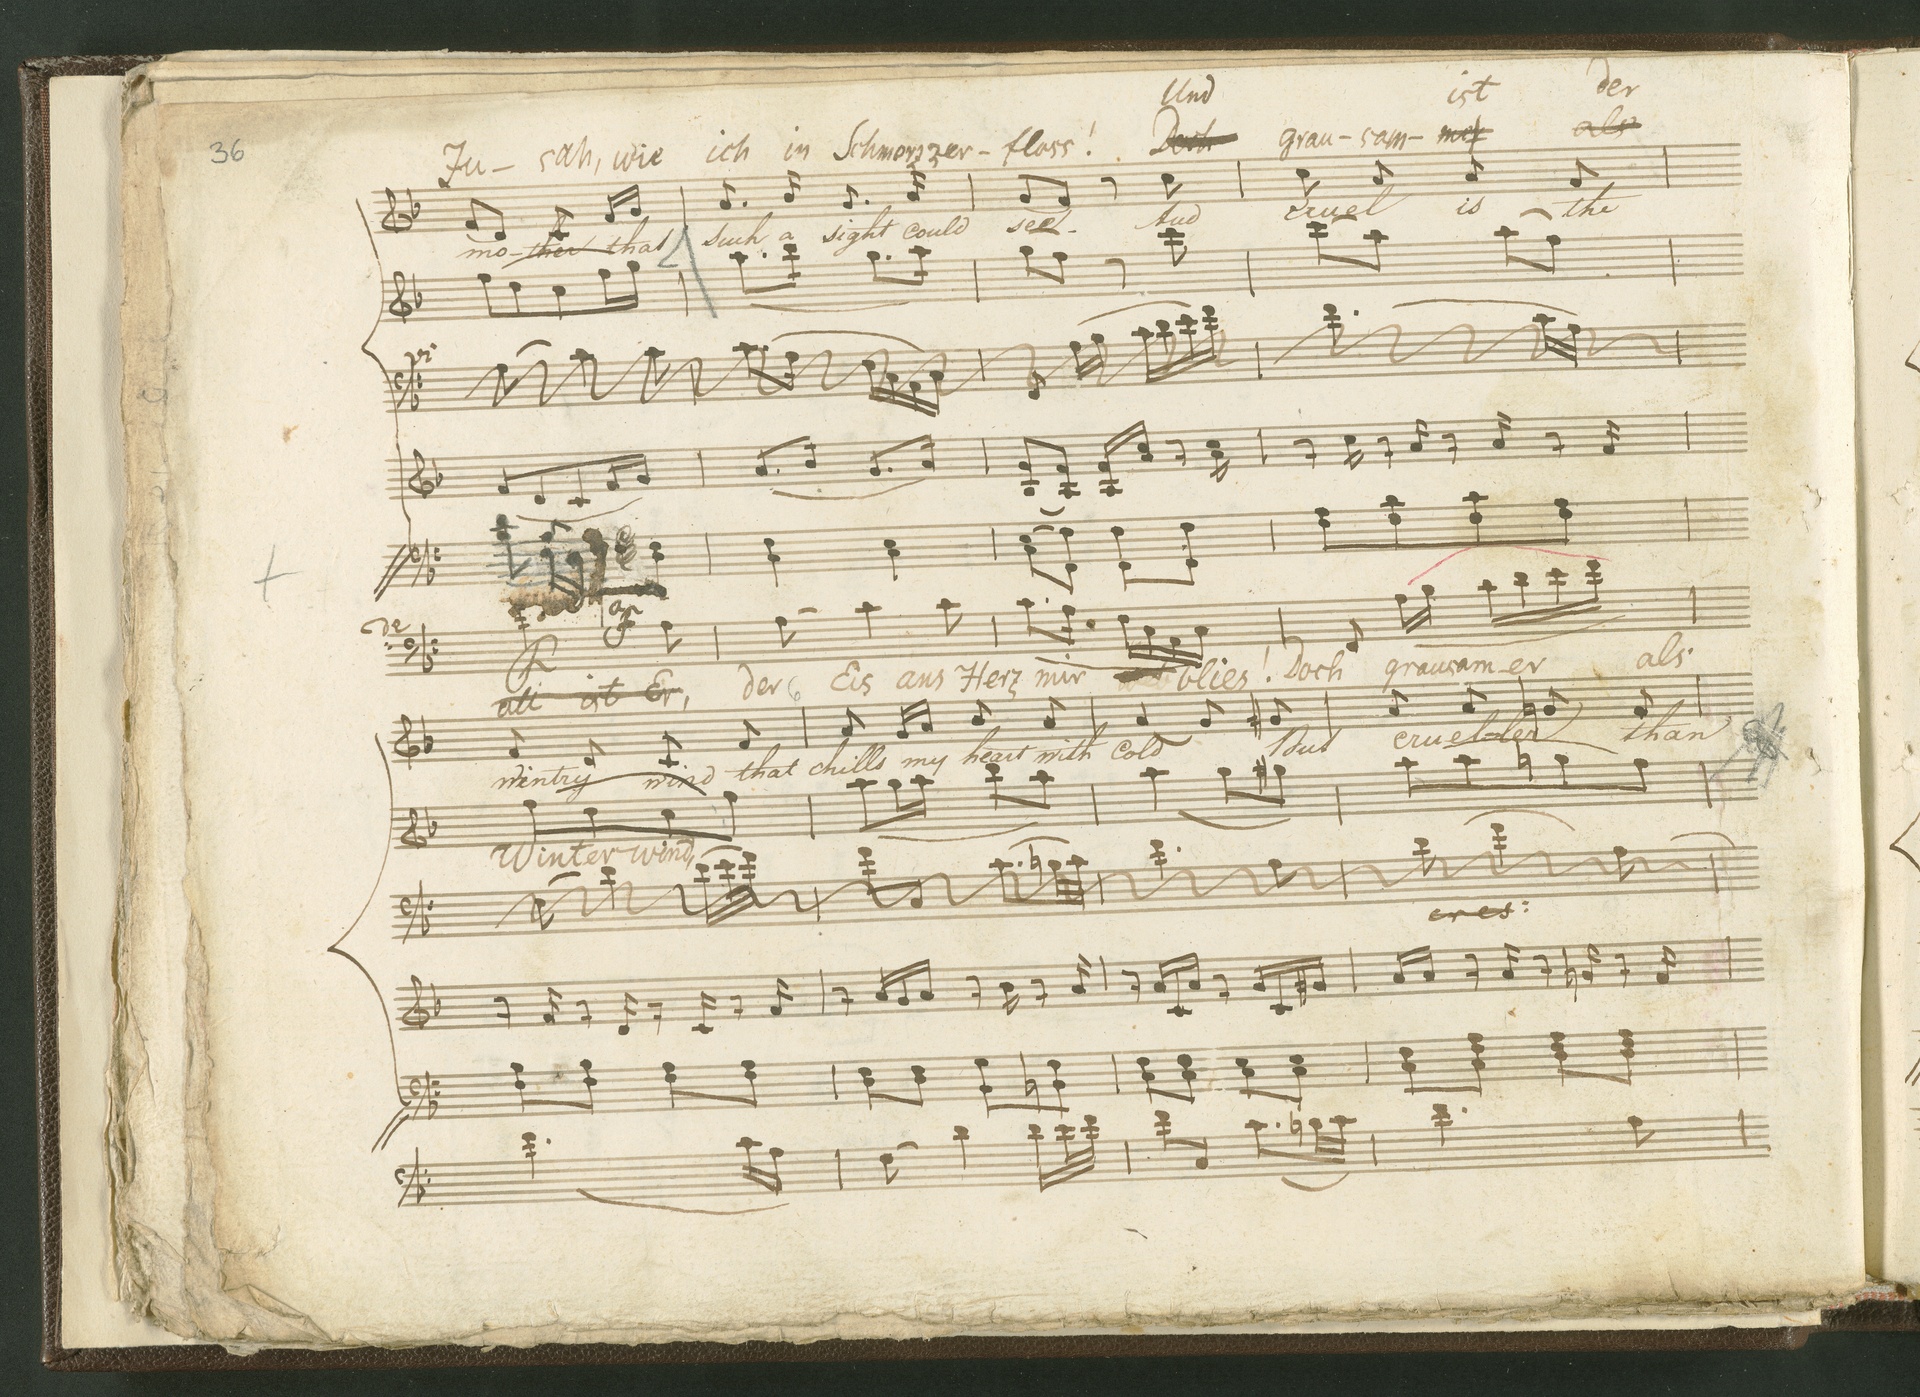 36
Und ist der
Zu- sah, wie ich in Schmerz zer- floss! Doch grau- sam- mer als
mo- ther that such a sight could see. And cruel is the
Er, der Eis ans Herz mir blies! Doch grausam-er als
wintry wind that chills my heart with cold But cruel-ler than
Winter wind,